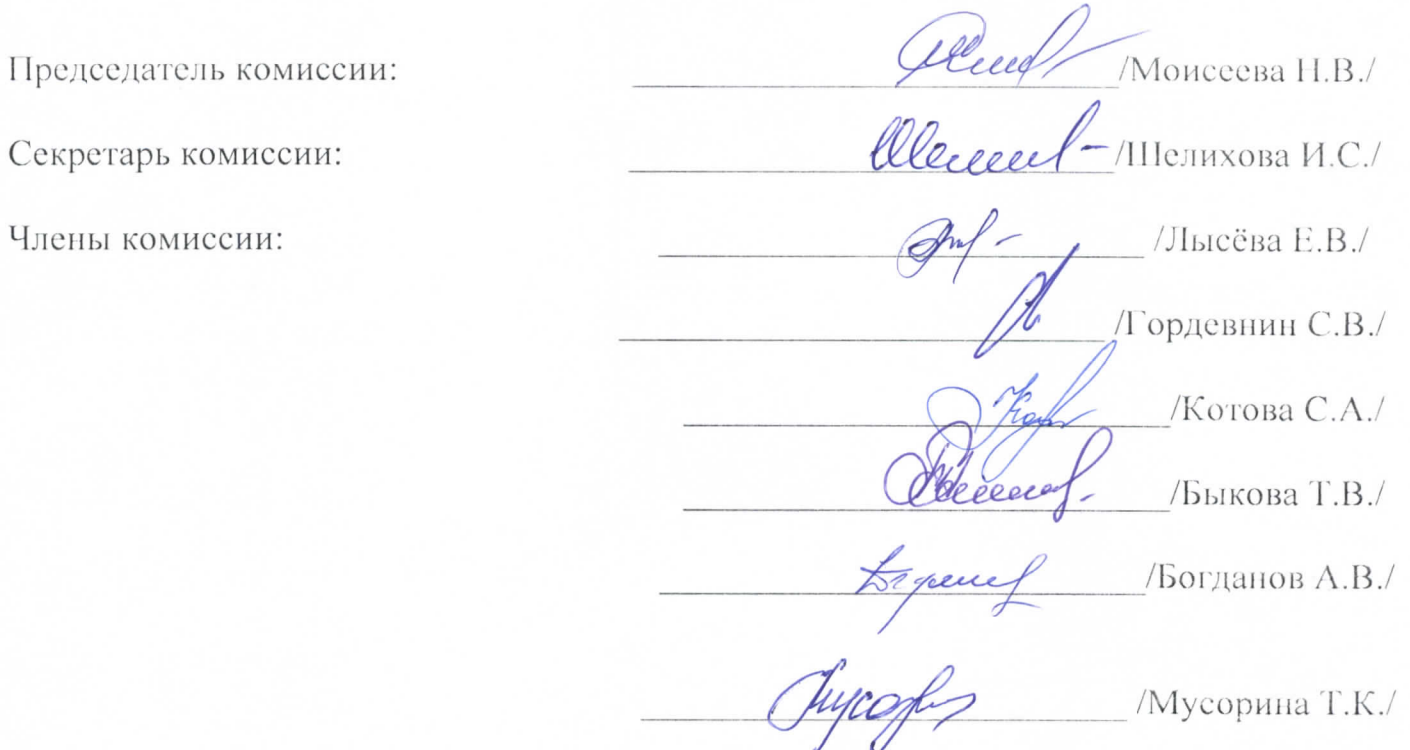 Председатель комиссии: /Моисеева Н.В./
Секретарь комиссии: /Шелихова И.С./
Члены комиссии: /Лысёва Е.В./
/Гордевнин С.В./
/Котова С.А./
/Быкова Т.В./
/Богданов А.В./
/Мусорина Т.К./